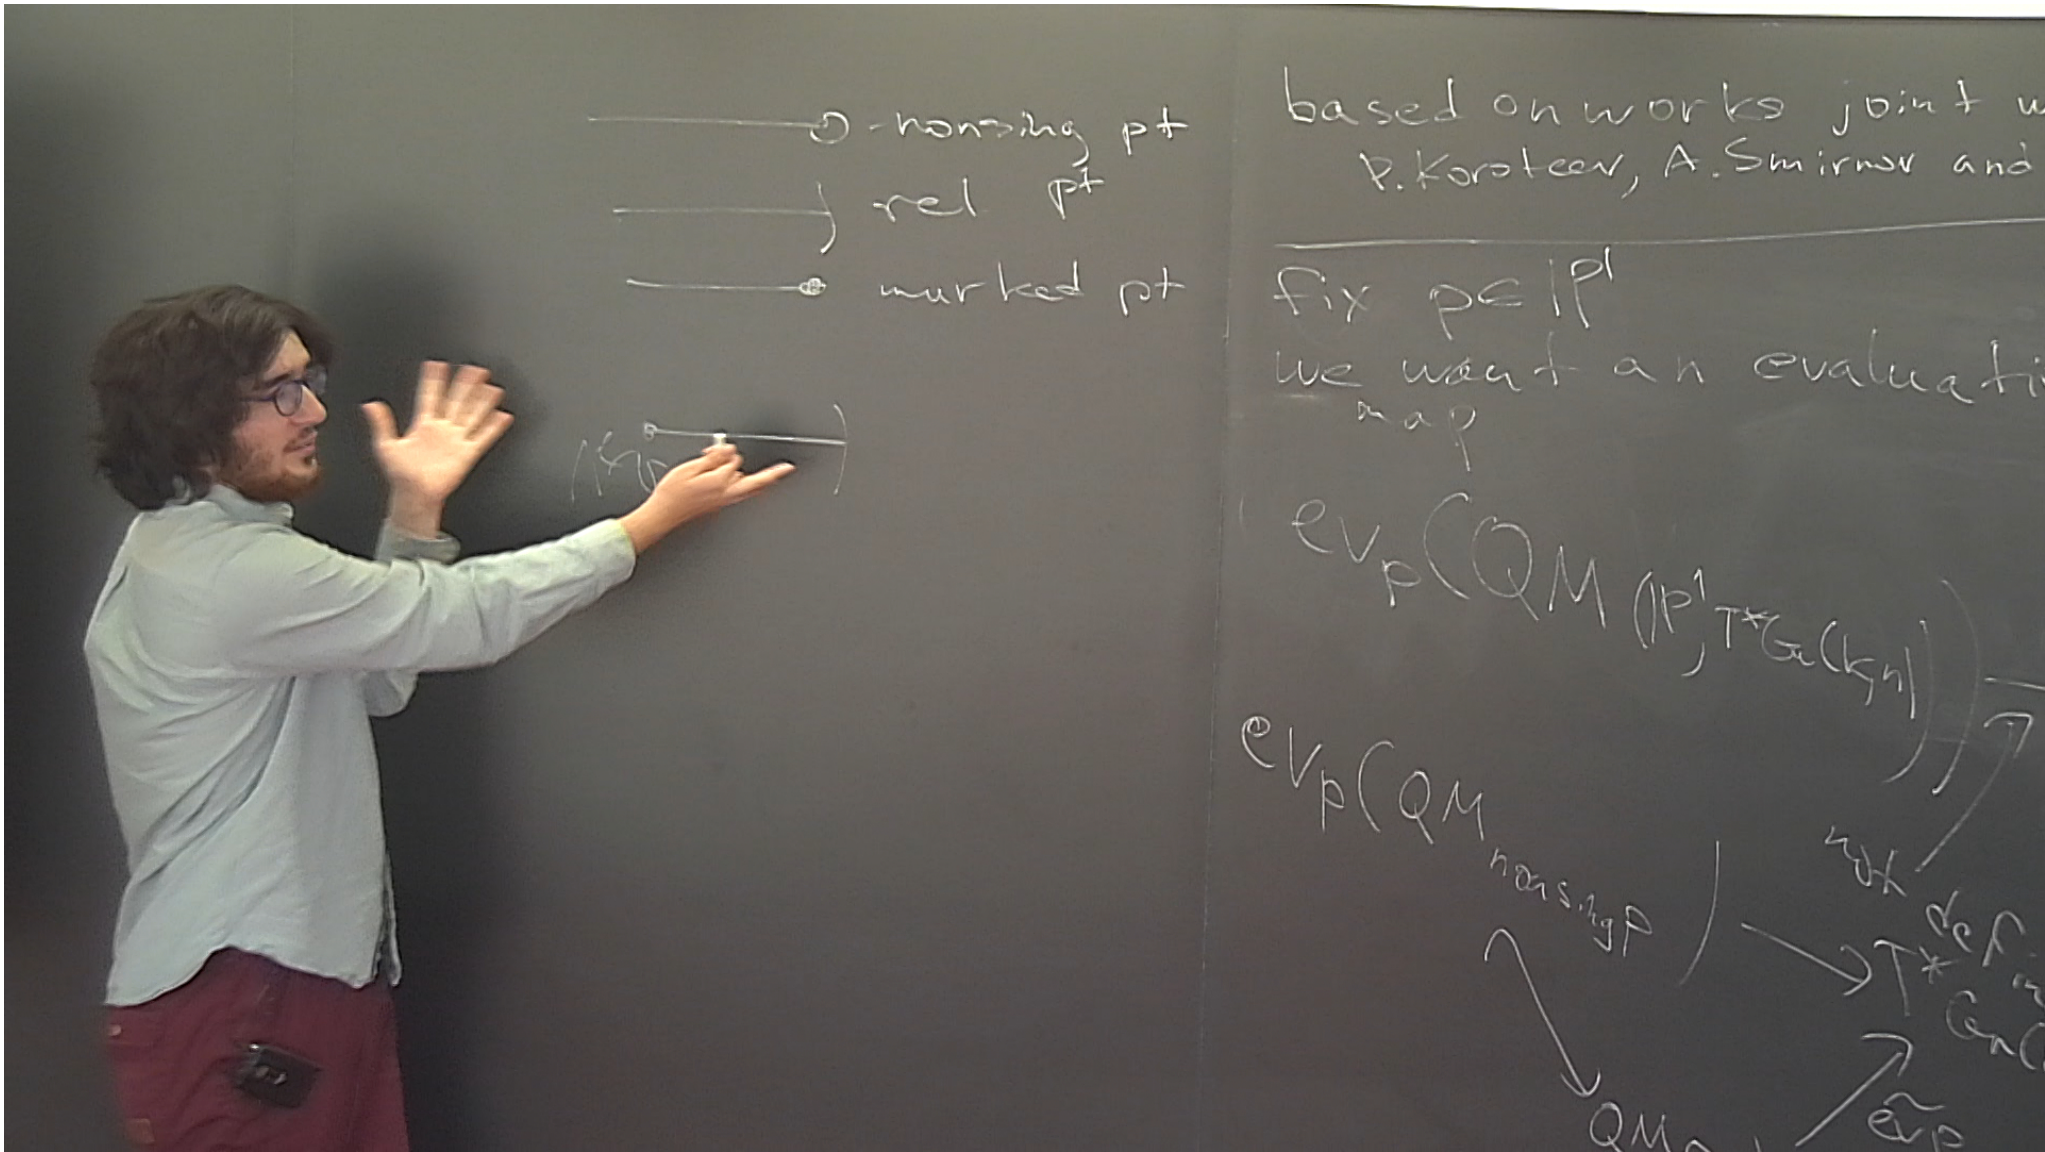 -nonsing pt
rel pt
marked pt
based on works joint w
P. Koroteev, A. Smirnov and
fix p ∈ ℙ¹
we want an evaluati
map
ev_p(QM(ℙ¹, T*Gr(k,n)))
not defin
ev_p(QM_nonsing p) → T*Gr(
QM
ẽv_p